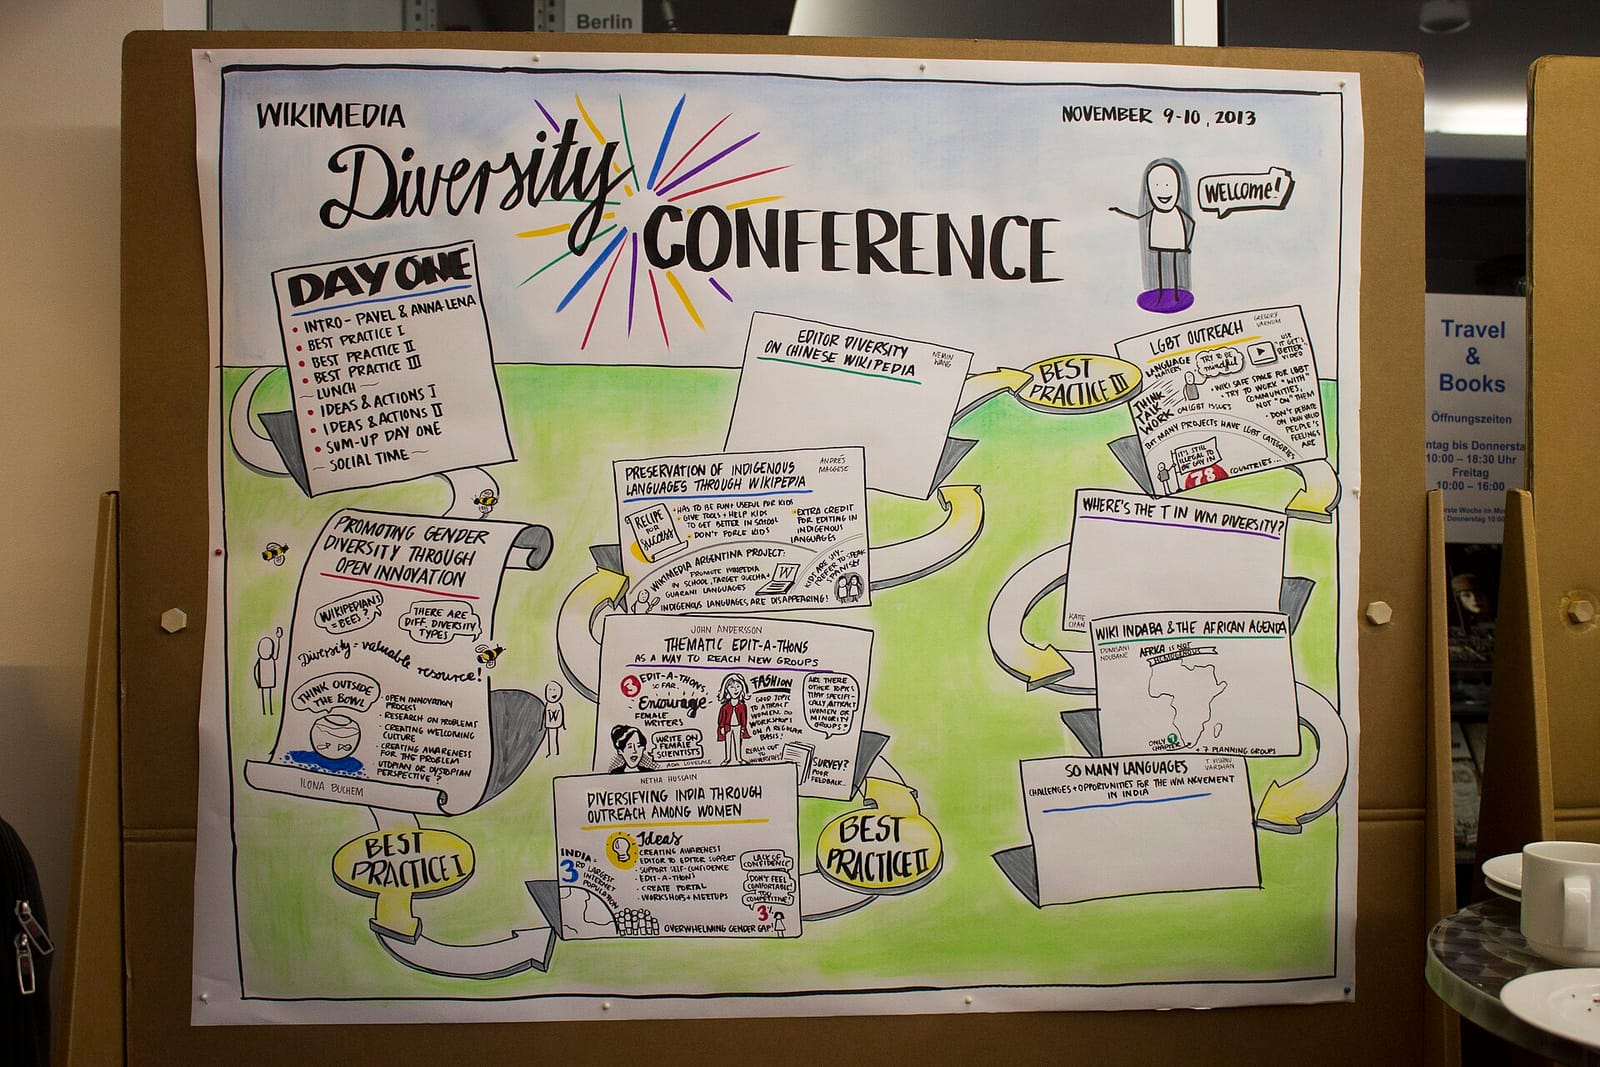 Berlin
WIKIMEDIA
Diversity
CONFERENCE
NOVEMBER 9-10, 2013
WELCOME!
DAY ONE
INTRO - PAVEL & ANNA-LENA
BEST PRACTICE I
BEST PRACTICE II
BEST PRACTICE III
LUNCH
IDEAS & ACTIONS I
IDEAS & ACTIONS II
SUM-UP DAY ONE
SOCIAL TIME
PROMOTING GENDER
DIVERSITY THROUGH
OPEN INNOVATION
WIKIPEDIANS
= BEES?
THERE ARE
DIFF. DIVERSITY
TYPES
Diversity = valuable resource!
THINK OUTSIDE
THE BOWL
• OPEN INNOVATION
PROCESS
• RESEARCH ON PROBLEMS
• CREATING WELCOMING
CULTURE
• CREATING AWARENESS
FOR THE PROBLEM
UTOPIAN OR DYSTOPIAN
PERSPECTIVE?
ILONA BUCHEM
W
BEST
PRACTICE I
NETHA HUSSAIN
DIVERSIFYING INDIA THROUGH
OUTREACH AMONG WOMEN
Ideas
• CREATING AWARENESS
• EDITOR TO EDITOR SUPPORT
• SUPPORT SELF-CONFIDENCE
• EDIT-A-THONS
• CREATE PORTAL
• WORKSHOPS + MEETUPS
INDIA =
3RD LARGEST
INTERNET
POPULATION
LACK OF
CONFIDENCE
DON'T FEEL
COMFORTABLE!
TOO
COMPETITIVE!
3%
OVERWHELMING GENDER GAP!
BEST
PRACTICE II
JOHN ANDERSSON
THEMATIC EDIT-A-THONS
AS A WAY TO REACH NEW GROUPS
3 EDIT-A-THONS
SO FAR.
Encourage
FEMALE
WRITERS
WRITE ON
FEMALE
SCIENTISTS
ADA LOVELACE
FASHION
GOOD TOPIC
TO ATTRACT
WOMEN. DO
WORKSHOPS
ON A REGULAR
BASIS!
REACH OUT
TO
UNIVERSITIES
ARE THERE
OTHER TOPICS
THAT SPECIFI-
CALLY ATTRACT
WOMEN OR
MINORITY
GROUPS?
SURVEY?
POOR
FEEDBACK..
PRESERVATION OF INDIGENOUS
LANGUAGES THROUGH WIKIPEDIA
ANDRÉS
RECIPE
FOR
Success
• HAS TO BE FUN + USEFUL FOR KIDS
• GIVE TOOLS + HELP KIDS
TO GET BETTER IN SCHOOL
• DON'T FORCE KIDS
• EXTRA CREDIT
FOR EDITING IN
INDIGENOUS
LANGUAGES
WIKIMEDIA ARGENTINA PROJECT:
PROMOTE WIKIPEDIA
IN SCHOOL, TARGET QUECHA +
GUARANI LANGUAGES
W
KIDS ARE SHY -
PREFER TO SPEAK
SPANISH
INDIGENOUS LANGUAGES ARE DISAPPEARING!
EDITOR DIVERSITY
ON CHINESE WIKIPEDIA
WANG
BEST
PRACTICE III
LGBT OUTREACH
GREGORY
VARNUM
LANGUAGE
MATTERS
TRY TO BE
mindful
USE
"IT GETS
BETTER"
VIDEO
THINK
TALK
WORK
ON LGBT ISSUES
• WIKI SAFE SPACE FOR LGBT
• TRY TO WORK "WITH"
COMMUNITIES,
NOT "ON" THEM
• DON'T DEBATE
ON HOW VALID
PEOPLE'S
FEELINGS
ARE
MANY PROJECTS HAVE LGBT CATEGORIES
IT'S STILL
ILLEGAL TO
BE GAY IN
78
COUNTRIES...
WHERE'S THE T IN WM DIVERSITY?
CHAN
WIKI INDABA & THE AFRICAN AGENDA
DUMISANI
NDUBANE
AFRICA IS NOT
HOMOGENEOUS
ONLY 1
CHAPTER
+ 7 PLANNING GROUPS
SO MANY LANGUAGES
T. VISHNU
VARDHAN
CHALLENGES + OPPORTUNITIES FOR THE WM MOVEMENT
IN INDIA
Travel
&
Books
Öffnungszeiten
ntag bis Donnersta
10:00 – 18:30 Uhr
Freitag
10:00 – 16:00